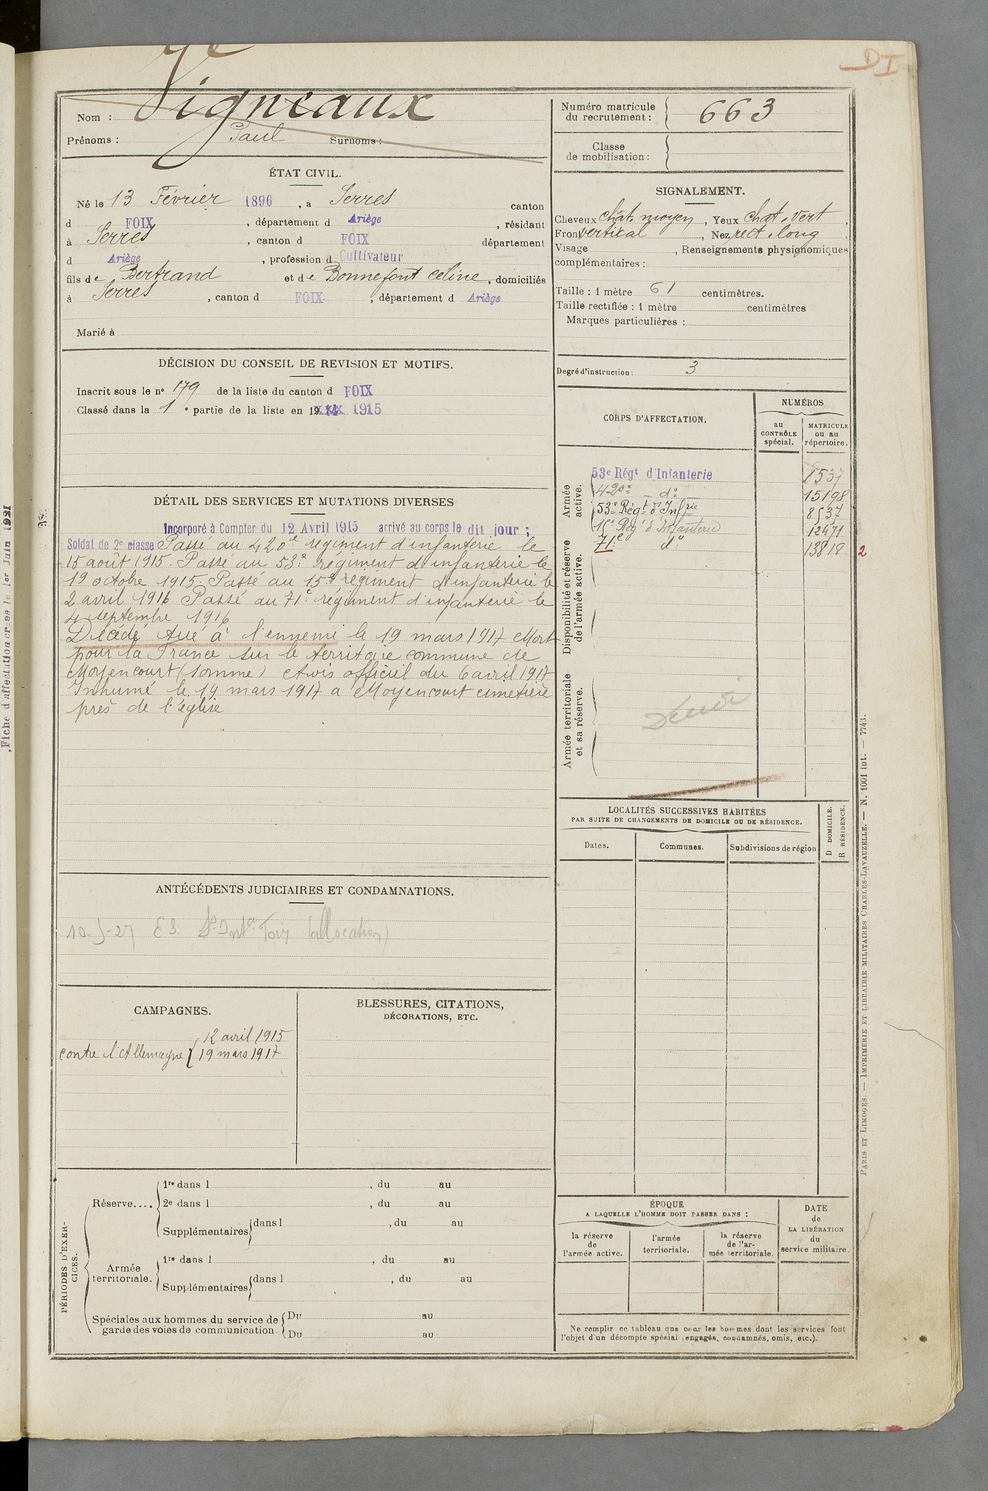 DI
Nom : Vigneaux
Prénoms : Paul Surnoms :
Numéro matricule
du recrutement : 663
Classe
de mobilisation :
ÉTAT CIVIL.
Né le 13 Février 1896, à Serres canton
d FOIX, département d Ariège, résidant
à Serres, canton d FOIX département
d Ariège, profession d Cultivateur
fils de Bertrand et de Bonnefont Celine, domiciliés
à Serres, canton d FOIX, département d Ariège
Marié à
SIGNALEMENT.
Cheveux chat. moyen, Yeux chat. vert,
Front vertical, Nez rect. long
Visage, Renseignements physiognomiques
complémentaires :
Taille : 1 mètre 61 centimètres.
Taille rectifiée : 1 mètre centimètres
Marques particulières :
Degré d'instruction : 3
DÉCISION DU CONSEIL DE REVISION ET MOTIFS.
Inscrit sous le nº 179 de la liste du canton d FOIX
Classé dans la 1e partie de la liste en 1915
CORPS D'AFFECTATION.
NUMÉROS
au
CONTRÔLE
spécial.
MATRICULE
ou au
répertoire.
Armée
active.
53e Régt d'Infanterie
420e dº 15198
53e Régt d'Infrie 8537
15e Rég d'Infanterie 12471
71e dº 13818 2
Disponibilité et réserve
de l'armée active.
Armée territoriale
et sa réserve.
DÉTAIL DES SERVICES ET MUTATIONS DIVERSES
Incorporé à Compter du 12 Avril 1915 arrivé au corps le dit jour ;
Soldat de 2e classe Passé au 420e régiment d'infanterie le
15 août 1915. Passé au 53e Régiment d'infanterie le
19 octobre 1915. Passé au 15e régiment d'infanterie le
2 avril 1916 Passé au 71e régiment d'infanterie le
4 septembre 1916
Décédé tué à l'ennemi le 19 mars 1917 Mort
pour la France sur le territoire commune de
Moyencourt (Somme) Avis officiel du 6 avril 1917
Inhumé le 19 mars 1917 a Moyencourt cimetière
près de l'église
LOCALITÉS SUCCESSIVES HABITÉES
PAR SUITE DE CHANGEMENTS DE DOMICILE OU DE RÉSIDENCE.
Dates.
Communes.
Subdivisions de région
D DOMICILE.
R RÉSIDENCE.
ANTÉCÉDENTS JUDICIAIRES ET CONDAMNATIONS.
(allocation)
CAMPAGNES.
contre l'Allemagne { 12 avril 1915
19 mars 1917
BLESSURES, CITATIONS,
DÉCORATIONS, ETC.
PÉRIODES D'EXER-
CICES.
Réserve....
1re dans l , du au
2e dans l , du au
Supplémentaires dans l , du au
Armée
territoriale.
1re dans l , du au
Supplémentaires dans l , du au
Spéciales aux hommes du service de
garde des voies de communication
Du au
Du au
ÉPOQUE
A LAQUELLE L'HOMME DOIT PASSER DANS :
la réserve
de
l'armée active.
l'armée
territoriale.
la réserve
de l'ar-
mée territoriale.
DATE
de
LA LIBÉRATION
du
service militaire.
Ne remplir ce tableau que pour les hommes dont les services font
l'objet d'un décompte spécial (engagés, condamnés, omis, etc.).
PARIS ET LIMOGES. — IMPRIMERIE ET LIBRAIRIE MILITAIRES CHARLES-LAVAUZELLE. — N. 1001 int. — 7743.
Fiche d'affectation créée le 1er Juin 1921